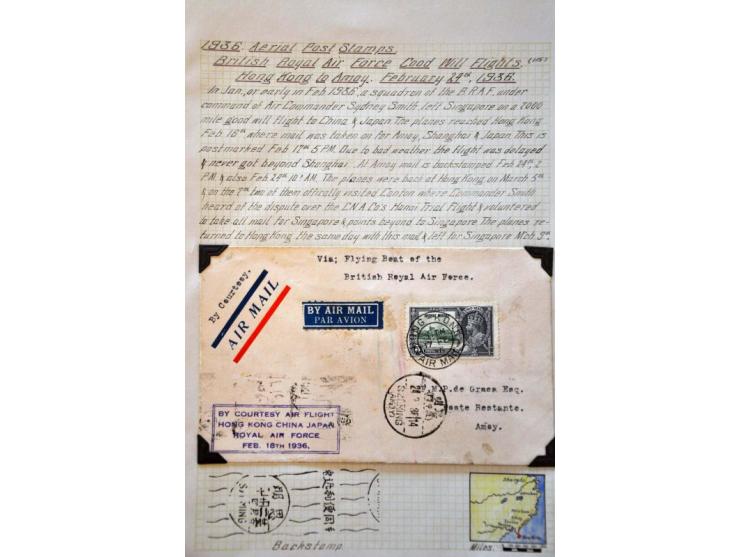 1936. Aerial Post Stamps.
British Royal Air Force Good Will Flights.
Hong Kong to Amoy. February 24th, 1936.
In Jan. or early in Feb 1936, a squadron of the B.R.A.F. under
command of Air Commander Sydney Smith left Singapore on a 7000
mile good will flight to China & Japan The planes reached Hong Kong
Feb. 16th where mail was taken on for Amoy, Shanghai & Japan This is
postmarked Feb 17th 5 P.M. Due to bad weather the flight was delayed
& never got beyond Shanghai. At Amoy mail is backstamped Feb 24th 2
P.M. & also Feb 25th 10 A.M. The planes were back at Hong Kong on March 5th
& on the 7th two of them offically visited Canton where Commander Smith
heard of the dispute over the C.N.A.Co's Hanoi Trial Flight & volunteered
to take all mail for Singapore & points beyond to Singapore The planes re-
turned to Hong Kong the same day with this mail & left for Singapore Mch. 9th.
Via; Flying Boat of the
British Royal Air Force.
By Courtesy.
AIR MAIL
BY AIR MAIL
PAR AVION
HONG KONG
AIR MAIL
M.P.de Graca Esq.
Poste Restante.
Amoy.
BY COURTESY AIR FLIGHT
HONG KONG CHINA JAPAN
ROYAL AIR FORCE
FEB. 18TH 1936.
Backstamp.
Miles.